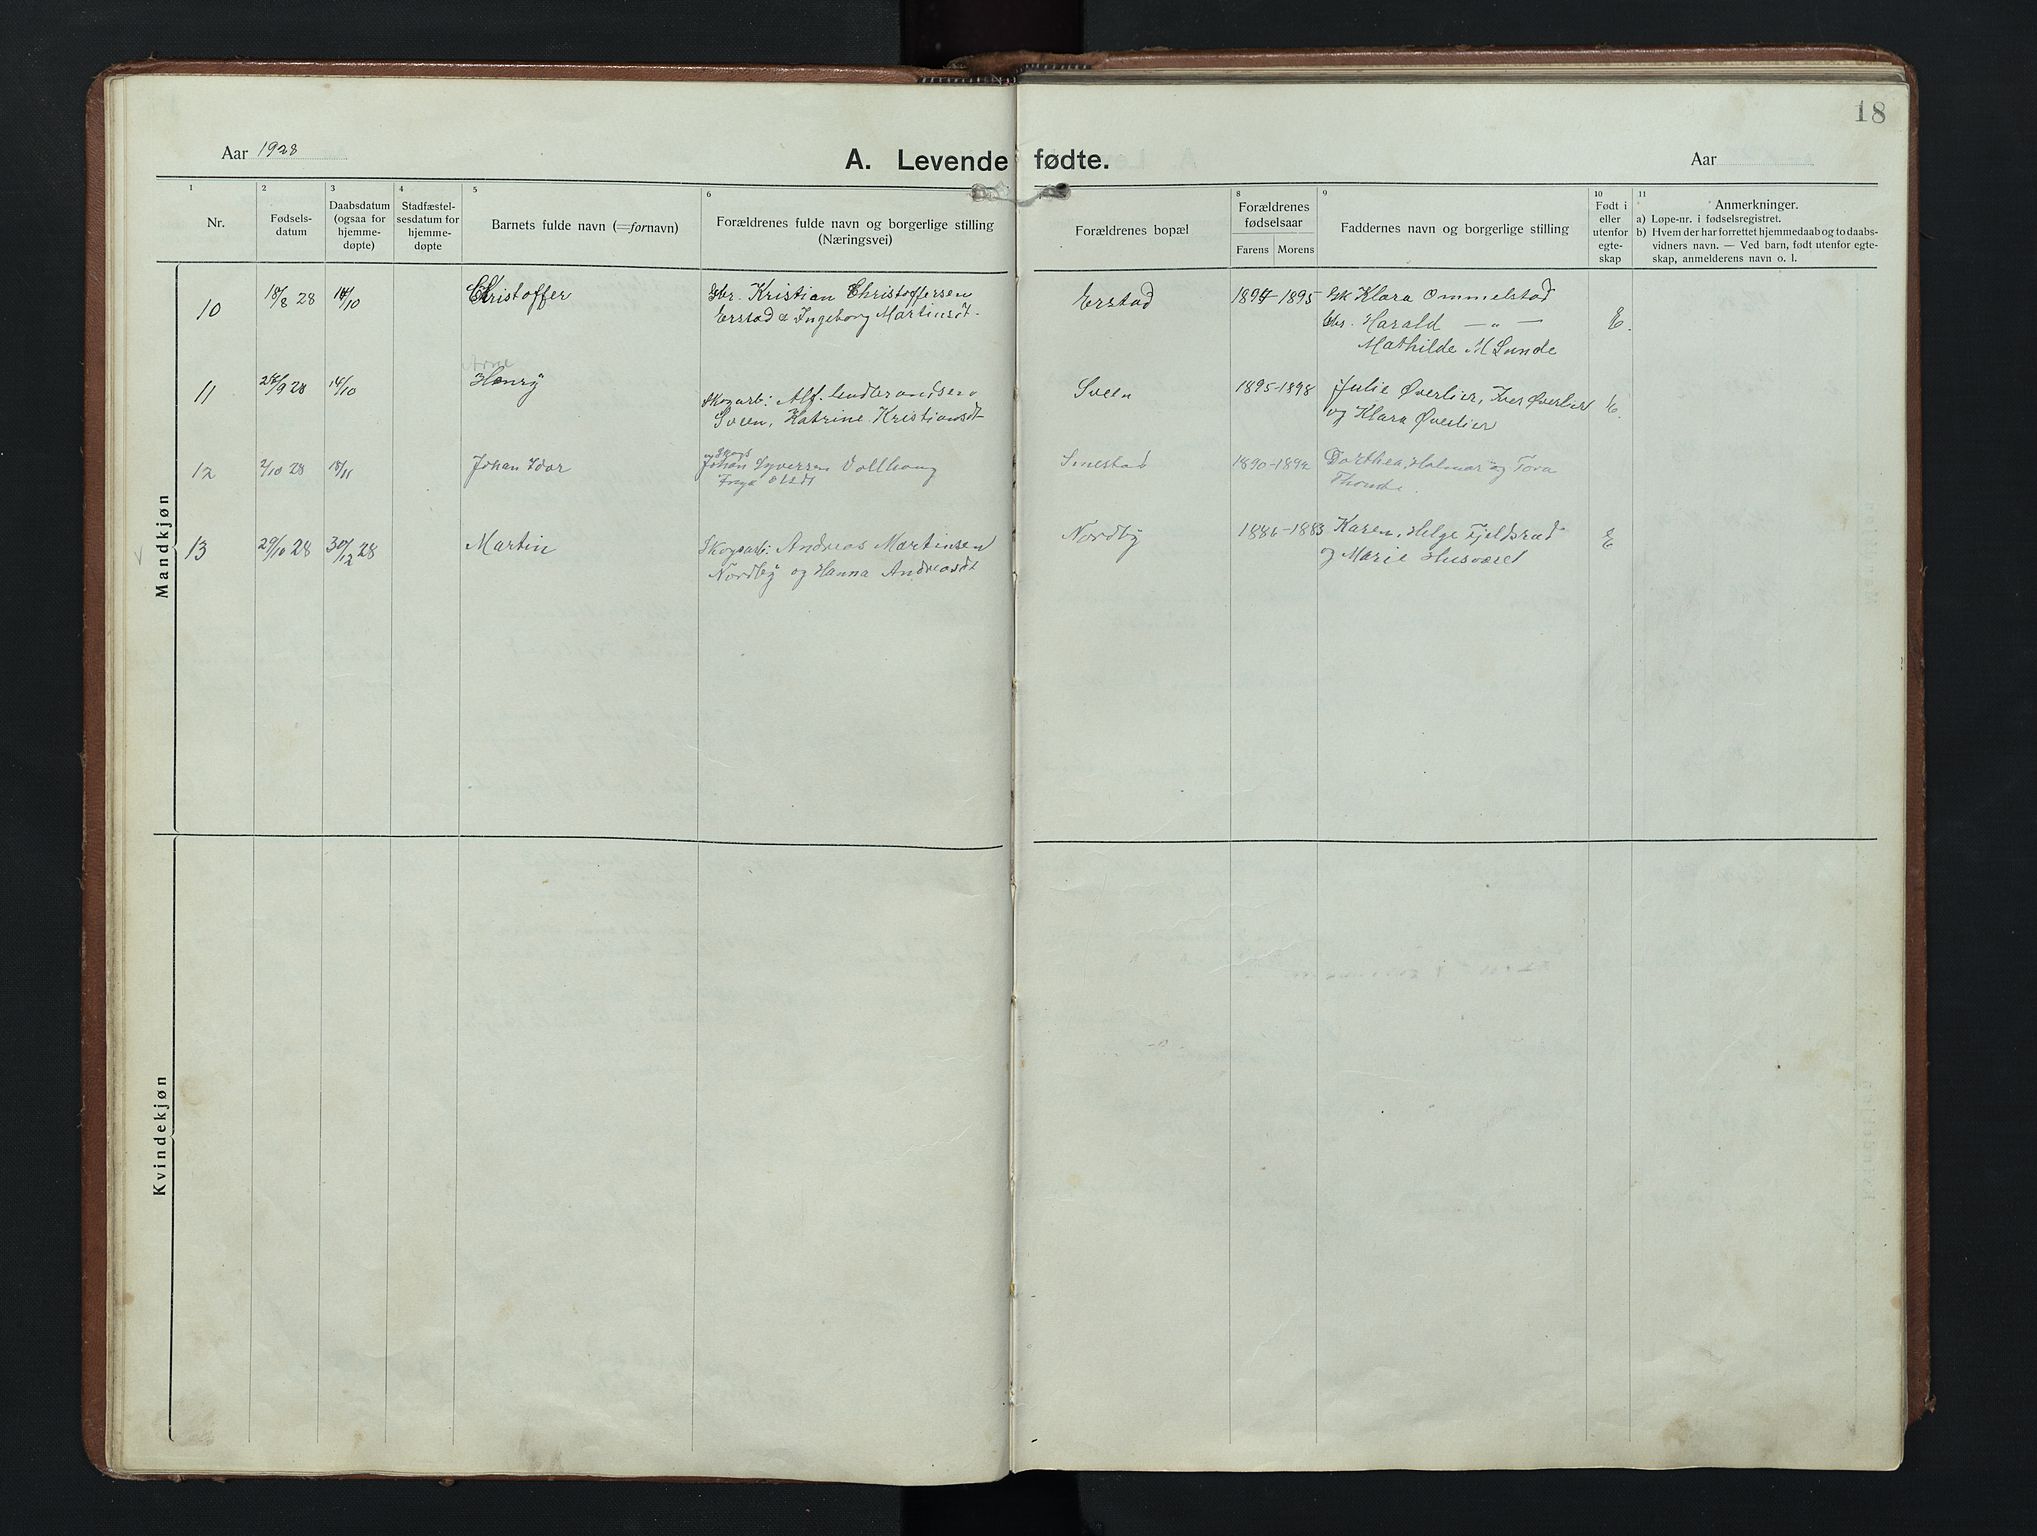 18
Aar 1928
A. Levende fødte.
Aar
1 2 3 4 5 6 8 9 10 11
Nr.
Fødsels-
datum
Daabsdatum
(ogsaa for
hjemme-
døpte)
Stadfæstel-
sesdatum for
hjemme-
døpte
Barnets fulde navn (=fornavn)
Forældrenes fulde navn og borgerlige stilling
(Næringsvei)
Forældrenes bopæl
Forældrenes
fødselsaar
Farens Morens
Faddernes navn og borgerlige stilling
Født i
eller
utenfor
egte-
skap
Anmerkninger.
a) Løpe-nr. i fødselsregistret.
b) Hvem der har forrettet hjemmedaab og to daabs-
vidners navn. — Ved barn, født utenfor egte-
skap, anmelderens navn o. l.
Mandkjøn
10 18/8 28 14/10 Christoffer
Gbr. Kristian Christoffersen
Erstad & Ingeborg Martinsdt.
Erstad 1894-1895
Klara Ommelstad
Gbr. Harald — " —
Mathilde M Sunde
E.
Arne
11 28 14/10 Henry
Skogarb: Alf.
Sveen, Katrine Kristiansdt
Sveen 1895-1898
Julie Øverlier, Iver Øverlier
og Klara Øverlier
E.
12 2/10 28 18/11 Johan Idar
Skogs
Johan Syversen
Smestad
Dorthea, Halmar og Tora
13 29/10 28 30/12 28 Martin
Skogsarb: Andreas Martinsen
Nordby og Hanna Andreasdt
Nordby 1886-1883
Karen, Helge Fjeldsrud
og Marie Husværet
E
Kvindekjøn